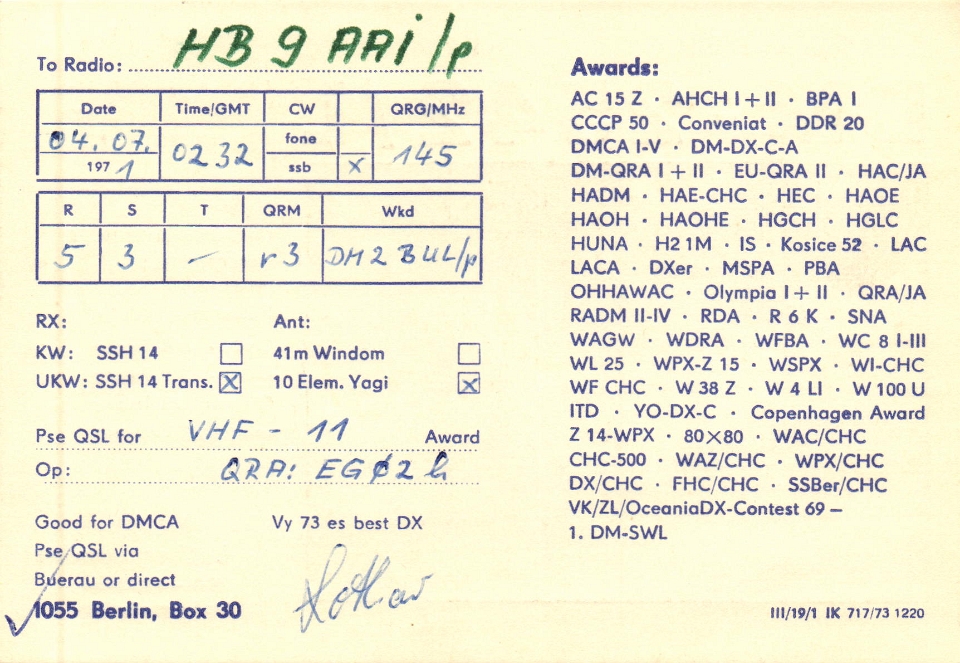 To Radio: HB 9 AAI/p
Date Time/GMT CW QRG/MHz
04.07. 1971 0232 fone ssb x 145
R S T QRM Wkd
5 3 – r3 DM2BUL/p
RX: Ant:
KW: SSH 14 41m Windom
UKW: SSH 14 Trans. x 10 Elem. Yagi x
Pse QSL for VHF - 11 Award
Op: QRA: EGØ2h
Good for DMCA Vy 73 es best DX
Pse QSL via
Buerau or direct
1055 Berlin, Box 30
Lothar
Awards:
AC 15 Z · AHCH I + II · BPA I
CCCP 50 · Conveniat · DDR 20
DMCA I-V · DM-DX-C-A
DM-QRA I + II · EU-QRA II · HAC/JA
HADM · HAE-CHC · HEC · HAOE
HAOH · HAOHE · HGCH · HGLC
HUNA · H2 1M · IS · Kosice 52 · LAC
LACA · DXer · MSPA · PBA
OHHAWAC · Olympia I + II · QRA/JA
RADM II-IV · RDA · R 6 K · SNA
WAGW · WDRA · WFBA · WC 8 I-III
WL 25 · WPX-Z 15 · WSPX · WI-CHC
WF CHC · W 38 Z · W 4 LI · W 100 U
ITD · YO-DX-C · Copenhagen Award
Z 14-WPX · 80×80 · WAC/CHC
CHC-500 · WAZ/CHC · WPX/CHC
DX/CHC · FHC/CHC · SSBer/CHC
VK/ZL/OceaniaDX-Contest 69 –
1. DM-SWL
III/19/1 IK 717/73 1220